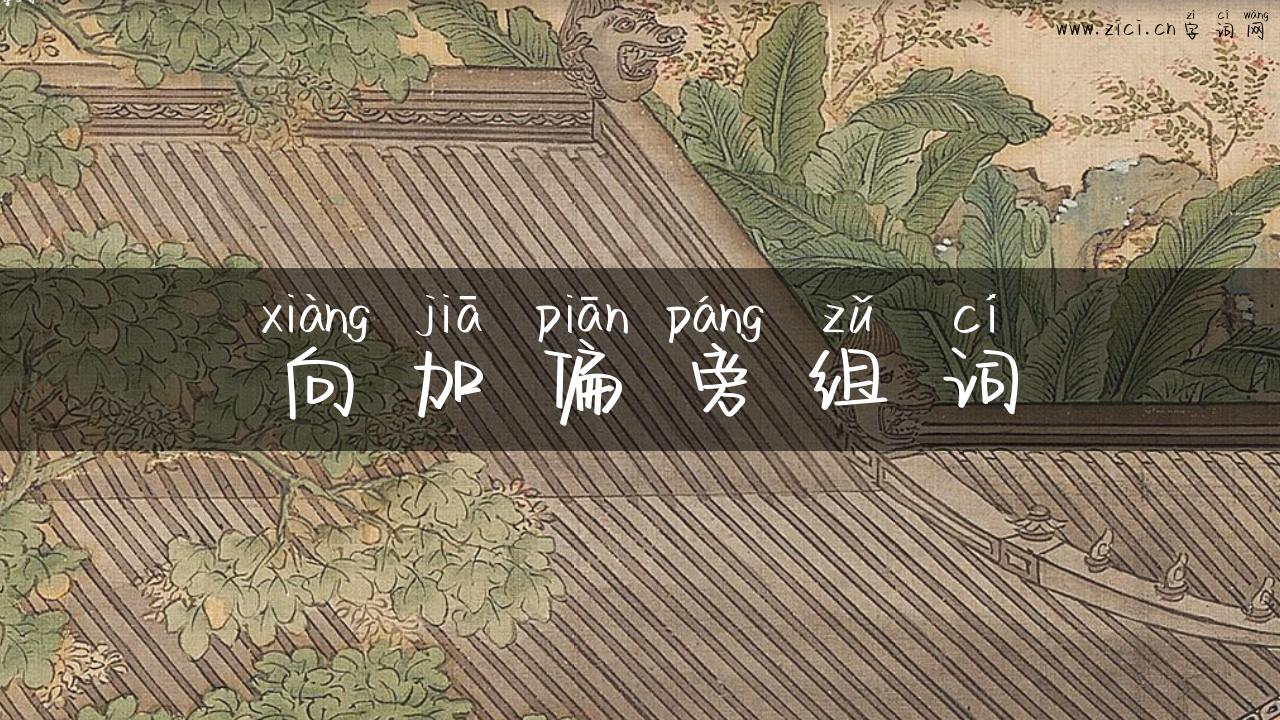 zì cí wǎng
www.zici.cn 字词网
xiàng jiā piān páng zǔ cí
向加偏旁组词